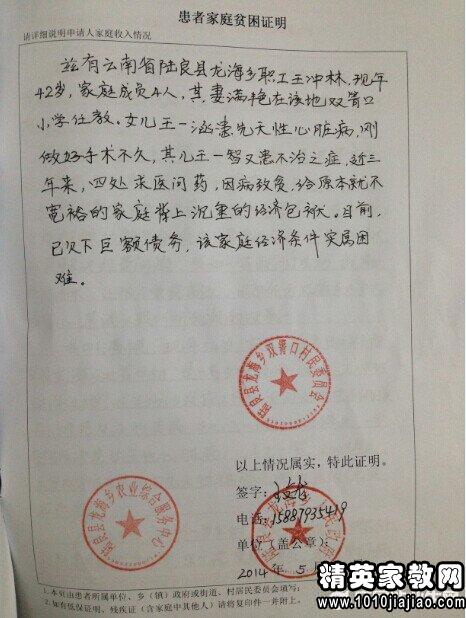 患者家庭贫困证明
请详细说明申请人家庭收入情况
兹有云南省陆良县龙海乡职工王冲林，现年
42岁，家庭成员4人，其妻满艳在该地双箐口
小学任教。女儿王一涵患先天性心脏病，刚
做好手术不久，其儿王一智又患不治之症，近三
年来，四处求医问药，因病致贫，给原本就不
宽裕的家庭背上沉重的经济包袱。目前，
已欠下巨额债务，该家庭经济条件实属困
难。
陆良县龙海乡双箐口村民委员会
以上情况属实，特此证明。
签字：
电话：15887935419
单位（盖公章）：
陆良县龙海乡农业综合服务中心
2014年 5
1.本页由患者所属单位、乡（镇）政府或街道、村居民委员会填写；
2.如有低保证明、残疾证（含家庭中其他人）请将复印件一并附上。
精英家教网
www.1010jiajiao.com